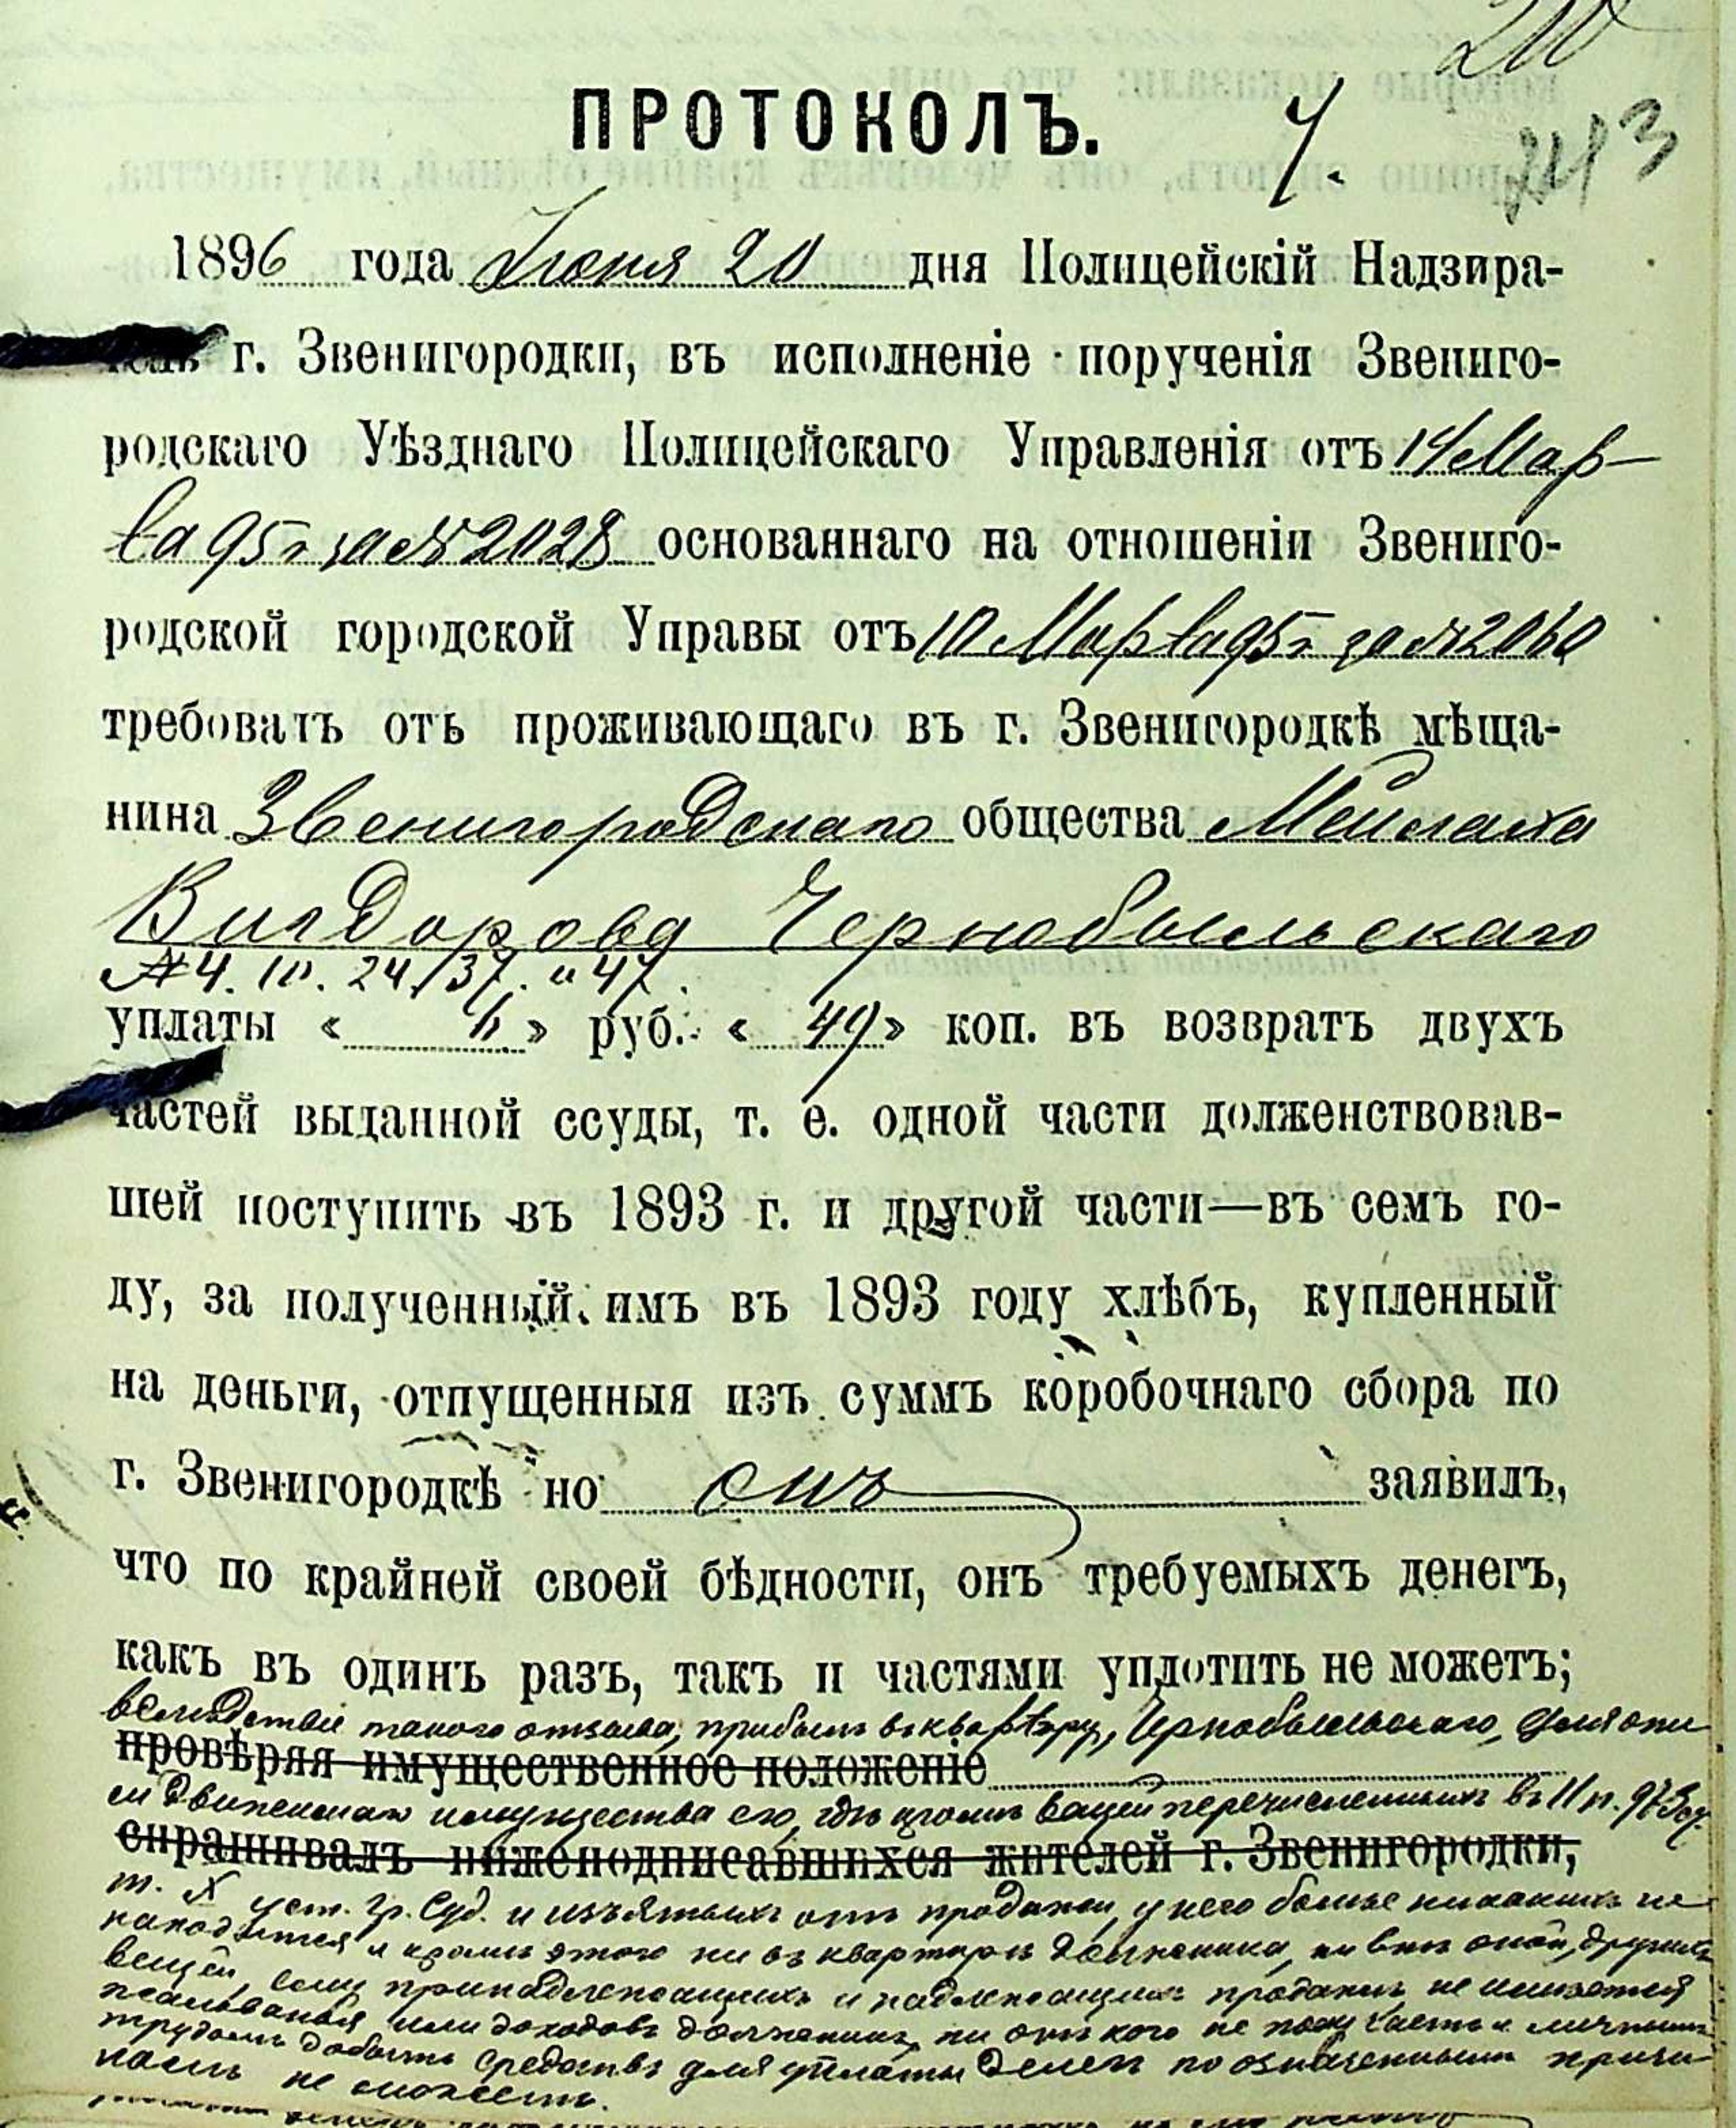 210
ПРОТОКОЛЪ.
7.
243
1896 года Іюня 20 дня Полицейскій Надзира-
тель г. Звенигородки, въ исполненіе порученія Звениго-
родскаго Уѣзднаго Полицейскаго Управленія отъ 14 Мар-
та 95 г за № 2028 основаннаго на отношеніи Звениго-
родской городской Управы отъ 10 Марта 95 г за № 2060
требовалъ отъ проживающаго въ г. Звенигородкѣ мѣща-
нина Звенигородскаго общества Мейлаха
Вигдорова Чернобыльскаго
№ 4. 10. 24. 37. и 47.
уплаты « 6 » руб. « 49 » коп. въ возвратъ двухъ
частей выданной ссуды, т. е. одной части долженствовав-
шей поступить въ 1893 г. и другой части—въ семъ го-
ду, за полученный имъ въ 1893 году хлѣбъ, купленный
на деньги, отпущенныя изъ суммъ коробочнаго сбора по
г. Звенигородкѣ но онъ заявилъ,
что по крайней своей бѣдности, онъ требуемыхъ денегъ,
какъ въ одинъ разъ, такъ и частями уплотить не можетъ;
вслѣдствіе такого отзыва, прибылъ въ квартиру, Чернобыльскаго, для опи
провѣряя имущественное положеніе
си движимаго имущества его, гдѣ кромѣ вещей перечисленныхъ въ 11 п. 973 ст.
спрашивалъ нижеподписавшихся жителей г. Звенигородки,
т. X уст. гр. Суд. и изъятыхъ отъ продажи, у него болѣе никакихъ не
находится и кромѣ этого ни въ квартирѣ должника, ни внѣ оной, другихъ
вещей, ему принадлежащихъ и подлежащихъ продажѣ не имѣется
жалованья или доходовъ должникъ ни отъ кого не получаетъ и личнымъ
трудомъ добыть средствъ для уплаты денегъ по означеннымъ причи-
намъ не можетъ.